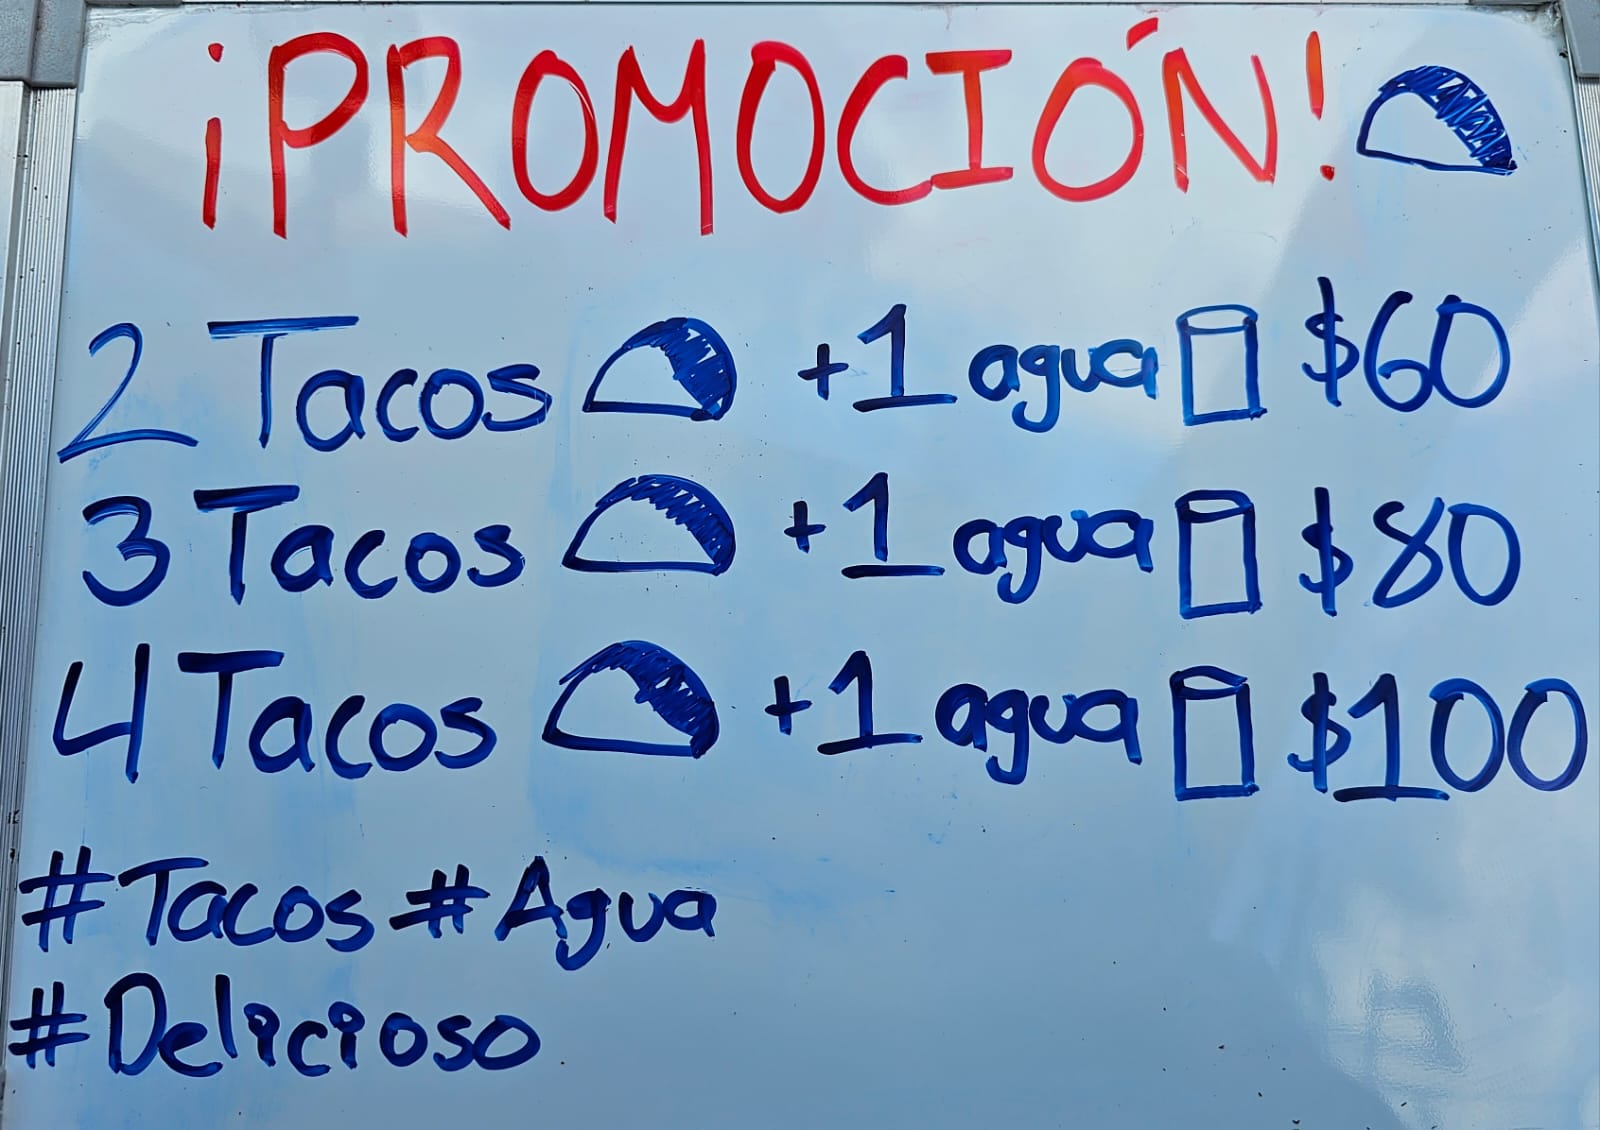 ¡PROMOCIÓN!
2 Tacos +1 agua $60
3 Tacos +1 agua $80
4 Tacos +1 agua $100
#Tacos #Agua
#Delicioso